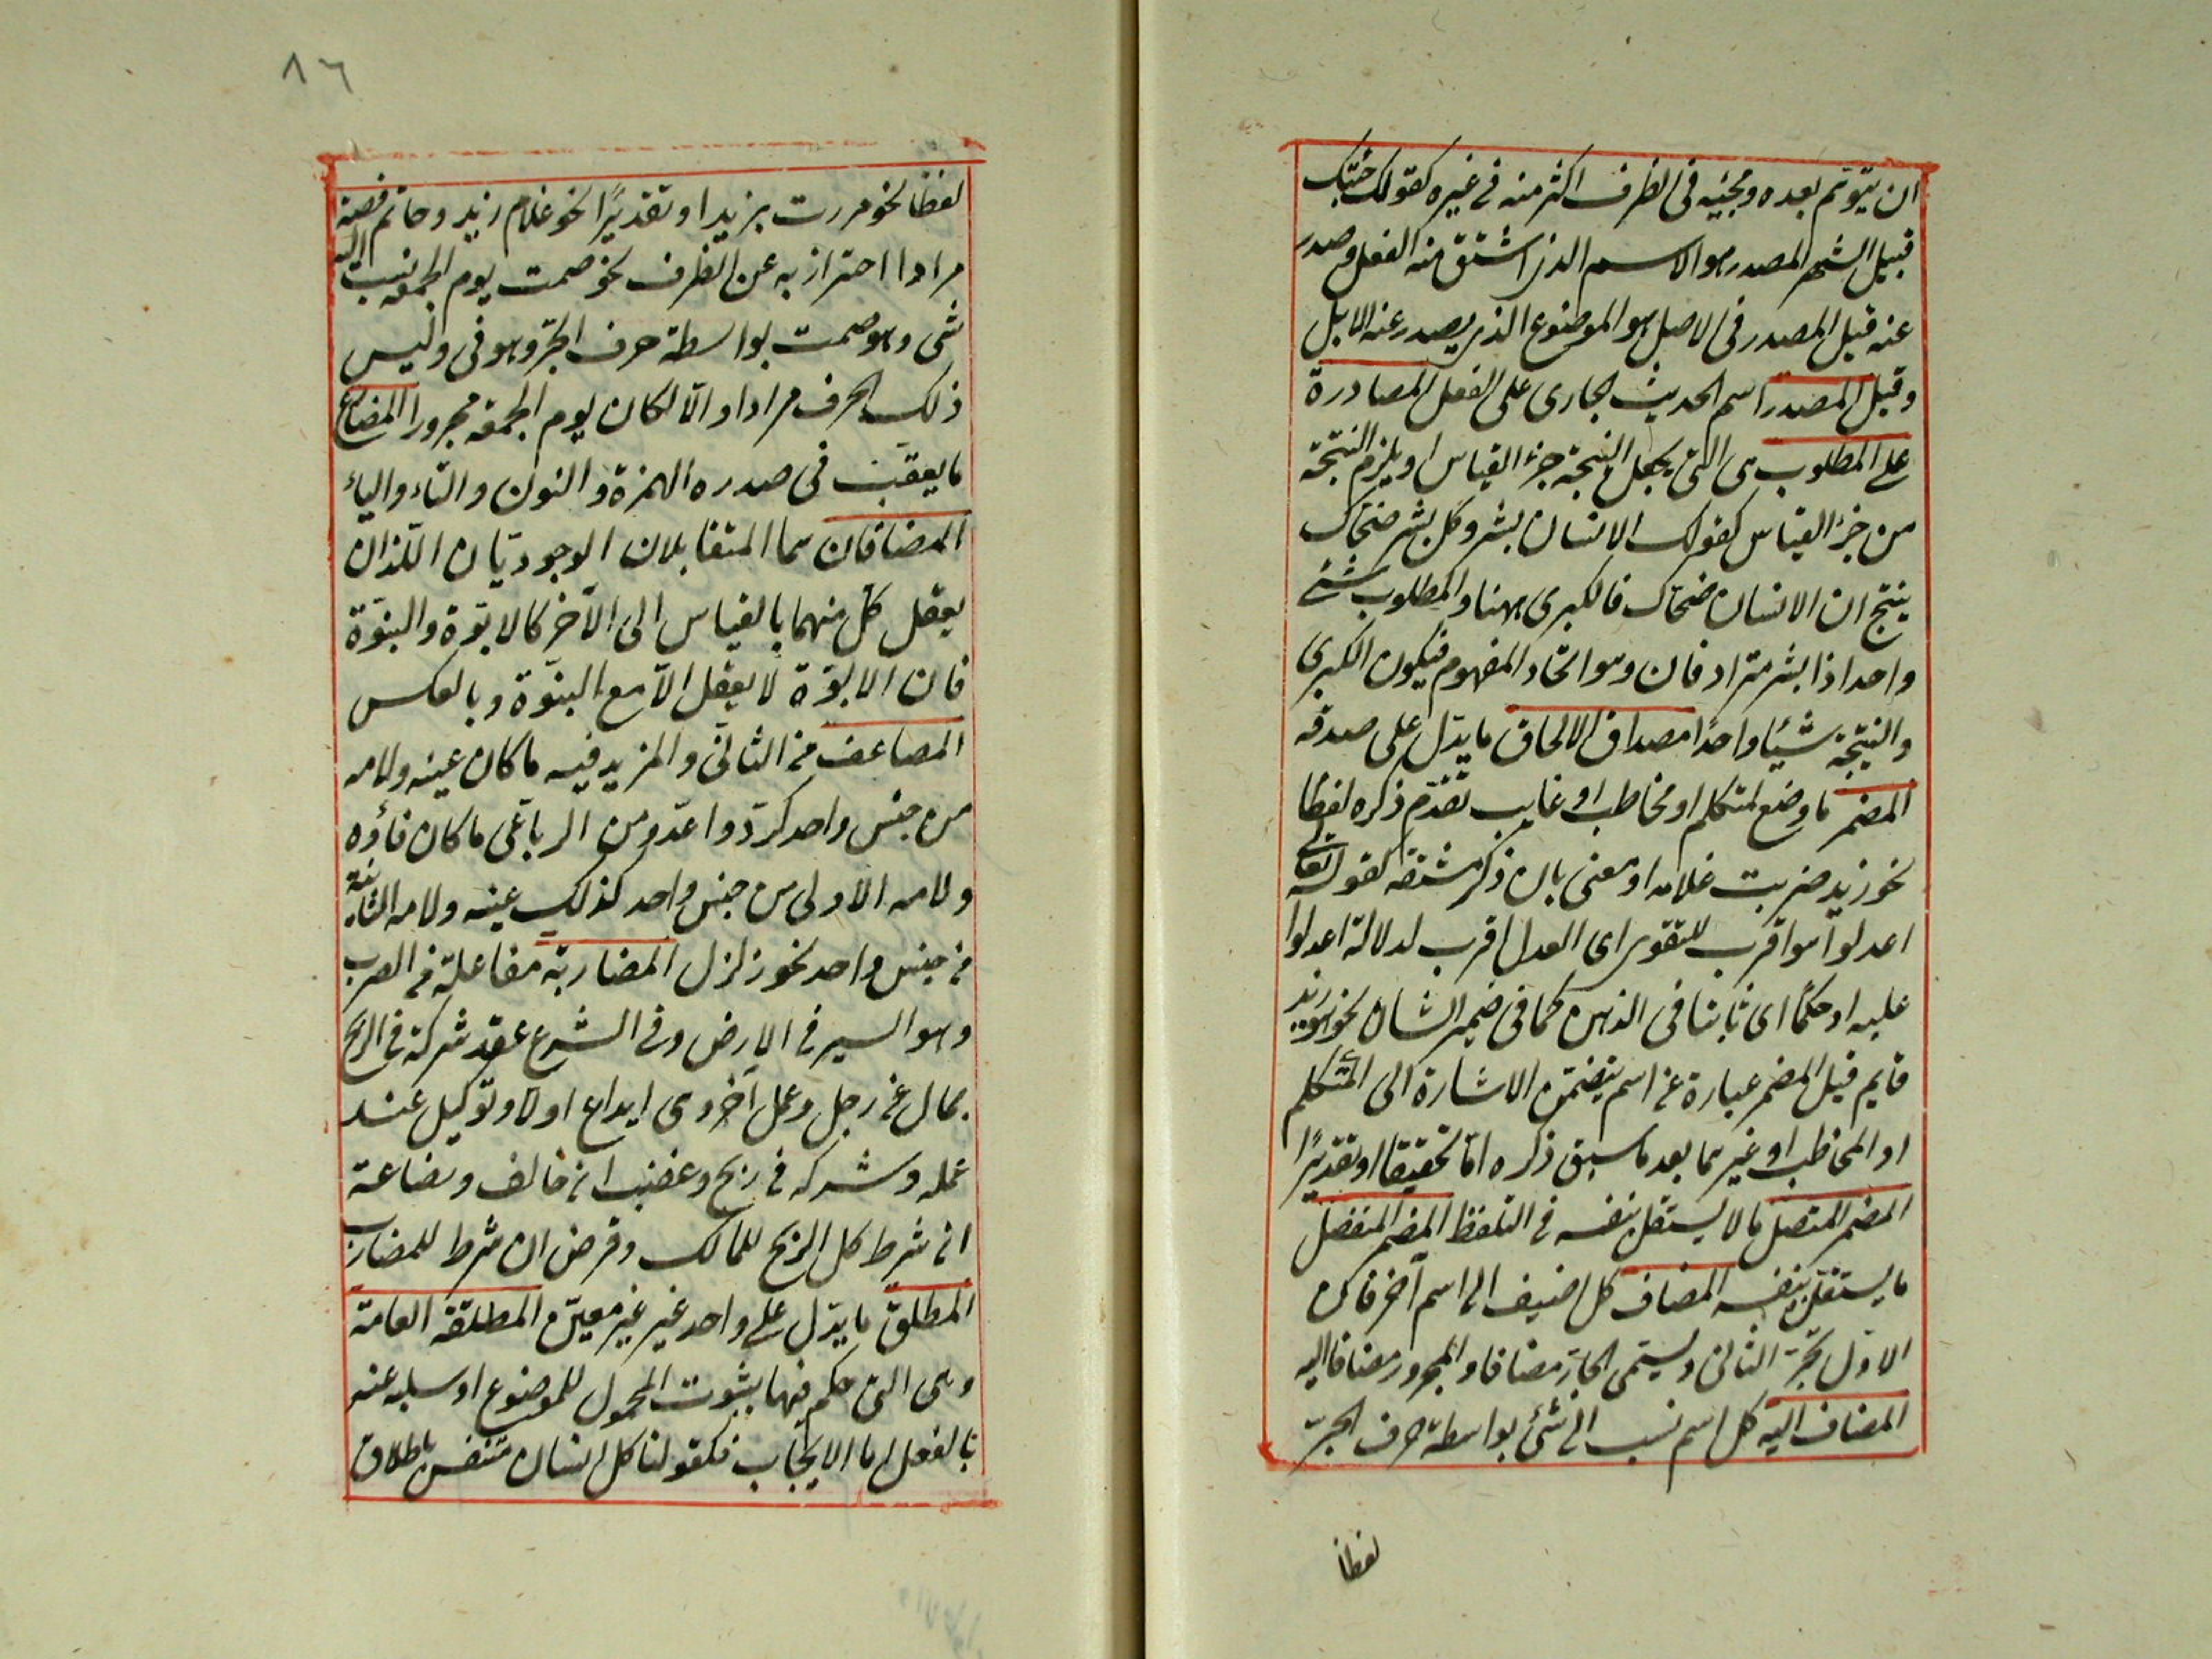 ان يتوهم بعده ومجيئه فى الظرف اكثر منه فى غيره كقولك جئتك
قبيل الشهر المصدر هو الاسم الذى اشتق منه الفعل وصدر
عنه قيل المصدر فى الاصل هو الموضوع الذى يصدر عنه الابل
وقيل المصدر اسم الحديث الجارى على الفعل المصادرة
على المطلوب هى التى يجعل النتيجة جزء القياس او يلزم النتيجة
من جزء القياس كقولك الانسان بشر وكل بشر ضحاك
ينتج ان الانسان ضحاك فالكبرى ههنا والمطلوب شئ
واحد اذا بشر مترادفان وهو اتحاد المفهوم فيكون الكبرى
والنتيجة شيئا واحدًا مصداق الالحاق ما يدل على صدقه
المضمر ما وضع لمتكلم او مخاطب او غايب تقدّم ذكره لفظا
نحو زيد ضربت غلامه او معنى بان ذكر مشتقه كقوله تعالى
اعدلوا هو اقرب للتقوى اى العدل اقرب لدلالة اعدلوا
عليه او حكمًا اى ثابتا فى الذهن كما فى ضمير الشان نحو هو زيد
قايم قيل المضمر عبارة عن اسم يتضمّن الاشارة الى المتكلم
او المخاطب او غيرهما بعد ما سبق ذكره امّا تحقيقا او تقديرًا
المضمر المتصل ما لا يستقل بنفسه فى التلفظ المضمر المنفصل
ما يستقل بنفسه المضاف كل اضيف الى اسم آخر فاكن
الاول يجرّ الثانى ويسمّى الجارّ مضافا والمجرور مضافا اليه
المضاف اليه كل اسم نسب الى شئ بواسطة حرف الجرّ
لفظا
٨٦
لفظا نحو مررت بزيد او تقديرًا نحو غلام زيد وخاتم فضة
مرادا احتراز به عن الظرف نحو صمت يوم الجمعة نسب اليه
شى وهو صمت بواسطة حرف الجرّ وهو فى وليس
ذلك الحرف مرادا والّا لكان يوم الجمعة مجرورا المضارع
ما يعقب فى صدره الهمزة والنون والتاء والياء
المضافان هما المتقابلان الوجوديّان اللّذان
يعقل كلّ منهما بالقياس الى الآخر كالابوّة والبنوّة
فان الابوّة لا يعقل الّا مع البنوّة وبالعكس
المضاعف من الثلاثى والمزيد فيه ما كان عينه ولامه
من جنس واحد كردّ واعدّ ومن الرباعى ما كان فاؤه
ولامه الاولى من جنس واحد كذلك عينه ولامه الثانية
من جنس واحد نحو زلزل المضاربة مفاعلة من الضرب
وهو السير فى الارض وفى الشرع عقد شركة فى الربح
بمال من رجل وعمل آخر وهى ايداع اولا وتوكيل عند
عمله وشركه فى ربح وغضب ان خالف وبضاعة
ان شرط كل الربح للمالك وقرض ان شرط للمضارب
المطلق ما يدّل على واحد غير غير معيّن المطلقة العامة
وهى التى حكم فيها بثبوت المحمول للموضوع او سلبه عنه
بالفعل اما الايجاب فكقولنا كل انسان متنفس باطلاق